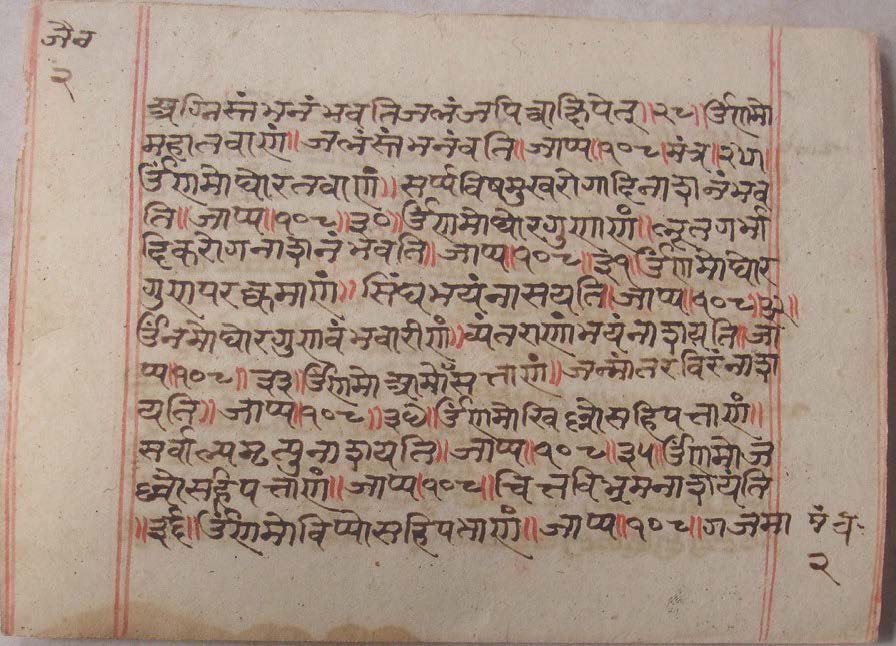 जैन
२
अग्निस्तंभनंभवतिजलंजपिवाछिपेत्॥२८॥ॐणमो
महातवाणं॥जलंस्तंभनंवति॥जाप्प॥१०८॥मंत्र॥२९॥
ॐणमोघोरतवाणं॥सर्प्पविषमुखरोगादिनाशनंभव
ति॥जाप्प॥१०८॥३०॥ॐणमोघोरगुणाणं॥लूतगर्भा
दिकरोगनाशनंभवति॥जाप्प॥१०८॥३१॥ॐणमोघोर
गुणपरक्कमाणं॥सिंघभयंनासयति॥जाप्प॥१०८॥३२॥
ॐनमोघोरगुणवंभचारीणं॥व्यंतराणांभयंनाशयति॥जा
प्प॥१०८॥३३॥ॐणमोआमोसहिपत्ताणं॥जन्मांतरंविरंनाश
यति॥जाप्प॥१०८॥३४॥ॐणमोखिल्लोसहिपत्ताणं॥
सर्वाल्पमृत्युनाशयति॥जाप्प॥१०८॥३५॥ॐणमोज
ल्लोसहिपत्ताणं॥जाप्प॥१०८॥चित्तविभ्रमनाशयति
॥३६॥ॐणमोविप्पोसहिपत्ताणं॥जाप्प॥१०८॥गजमा
मंत्र
२